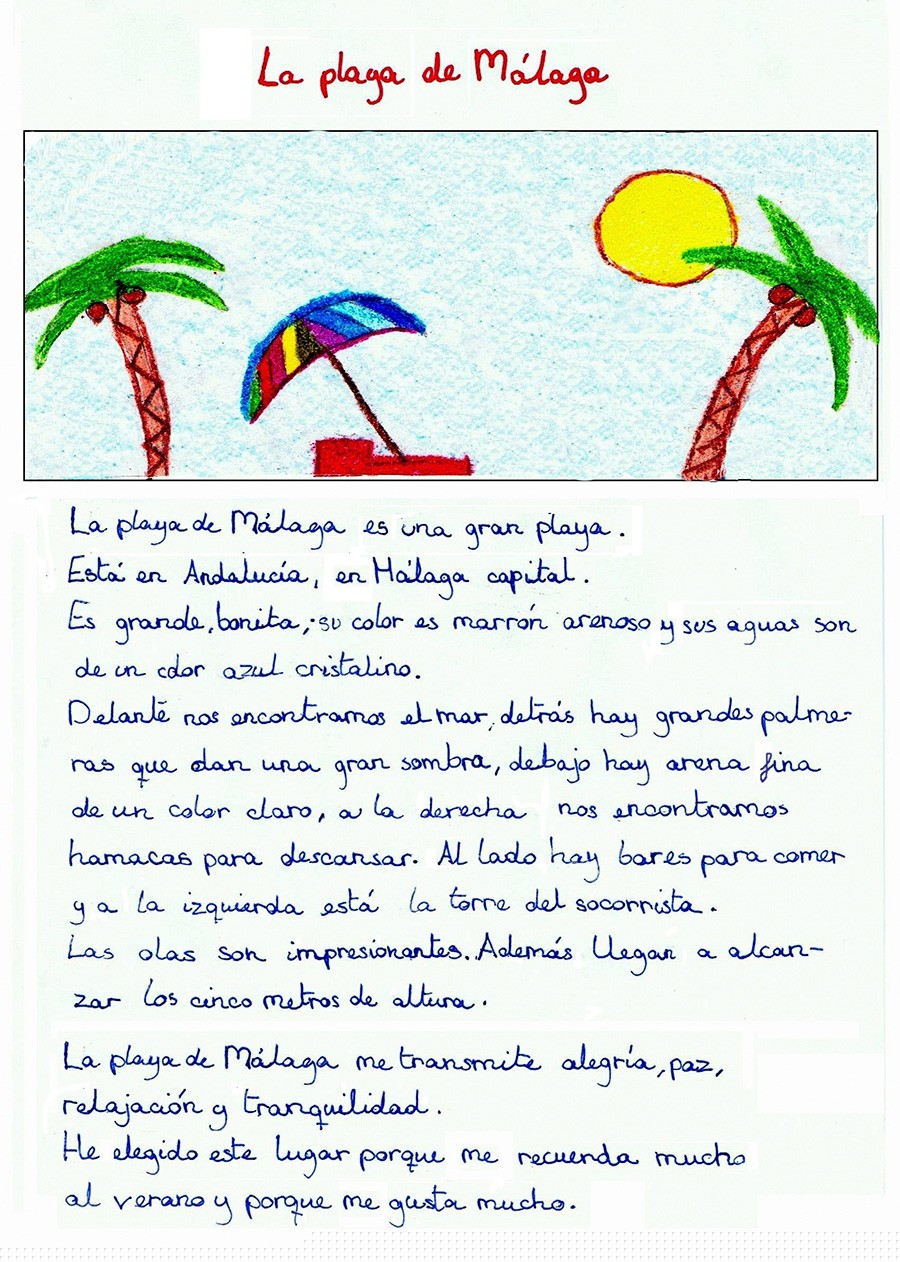 La playa de Málaga
La playa de Málaga es una gran playa.
Está en Andalucía, en Málaga capital.
Es grande, bonita, su color es marrón arenoso y sus aguas son
de un color azul cristalino.
Delante nos encontramos el mar, detrás hay grandes palme-
ras que dan una gran sombra, debajo hay arena fina
de un color claro, a la derecha nos encontramos
hamacas para descansar. Al lado hay bares para comer
y a la izquierda está la torre del socorrista.
Las olas son impresionantes. Además llegan a alcan-
zar los cinco metros de altura.
La playa de Málaga me transmite alegría, paz,
relajación y tranquilidad.
He elegido este lugar porque me recuerda mucho
al verano y porque me gusta mucho.